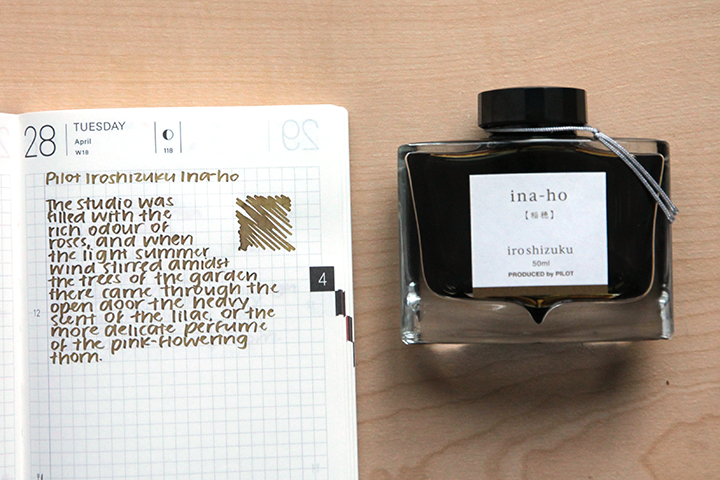 28
TUESDAY
April
W18
118
29
Pilot Iroshizuku Ina-ho
The studio was
filled with the
rich odour of
roses, and when
the light summer
wind stirred amidst
the trees of the garden
there came through the
open door the heavy
scent of the lilac, or the
more delicate perfume
of the pink-flowering
thorn.
4
12
ina-ho
【稲穂】
iroshizuku
50ml
PRODUCED by PILOT